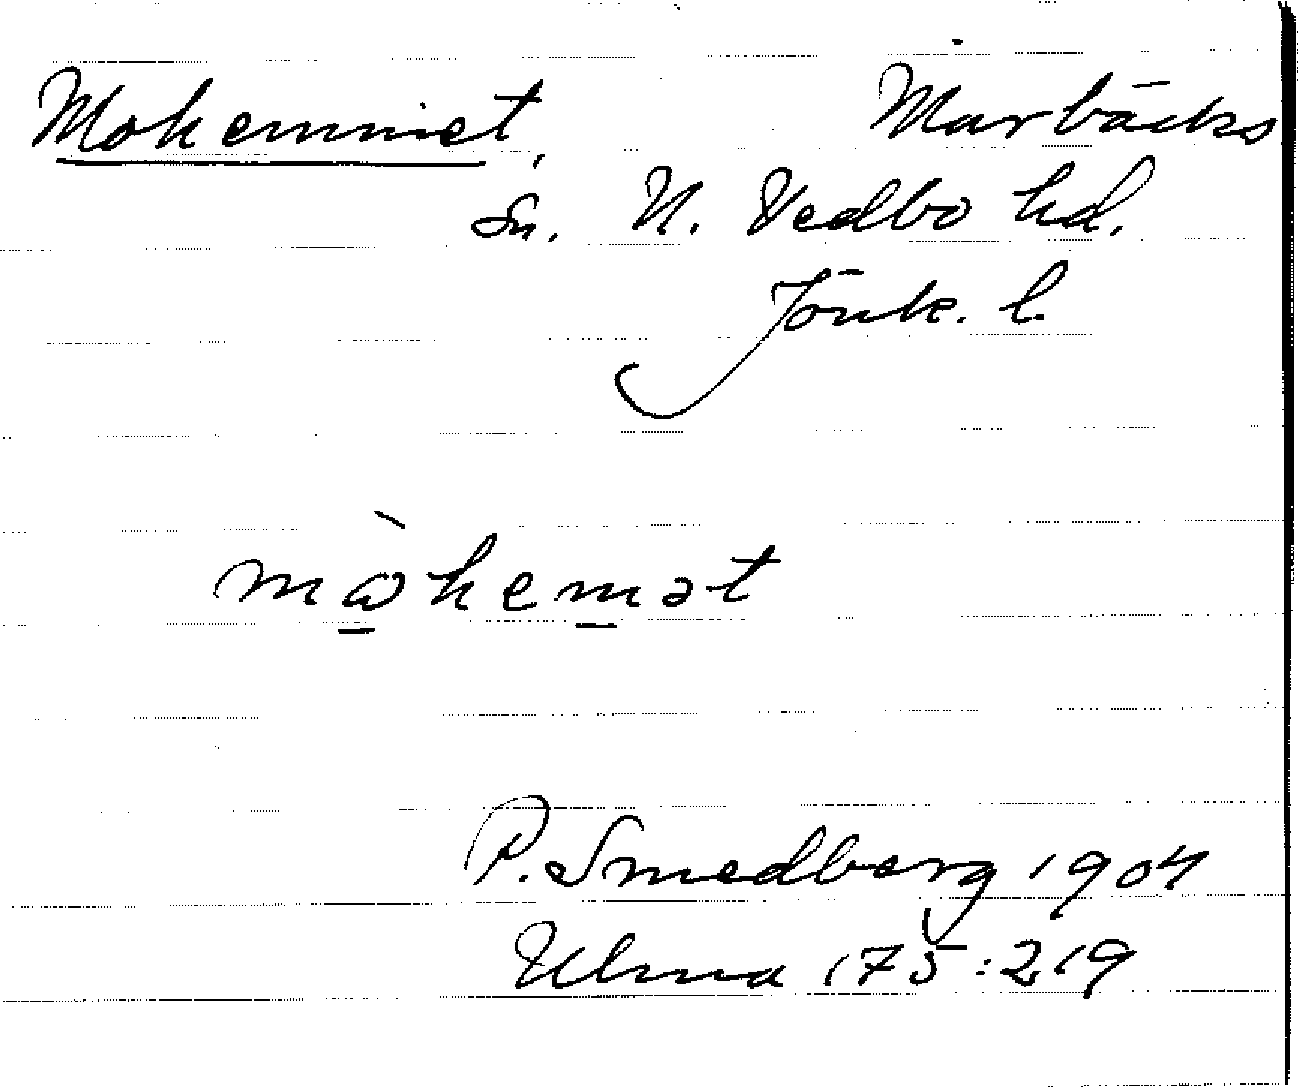 Mohemmet, Marbäcks
sn. N. Vedbo hd.
Jönk. l.
mòhemət
P. Smedberg 1904
Ulma 175:219